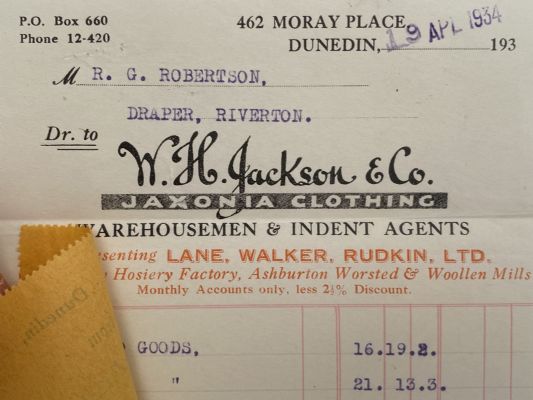 P.O. Box 660
Phone 12-420
462 MORAY PLACE
DUNEDIN, 19 APL 1934 193
M R. G. ROBERTSON,
DRAPER, RIVERTON.
Dr. to
W. H. Jackson & Co.
JAXONIA CLOTHING
WAREHOUSEMEN & INDENT AGENTS
senting LANE, WALKER, RUDKIN, LTD.
y Hosiery Factory, Ashburton Worsted & Woollen Mills
Monthly Accounts only, less 2½% Discount.
GOODS, 16.19.2.
" 21. 13.3.
Dunedin,